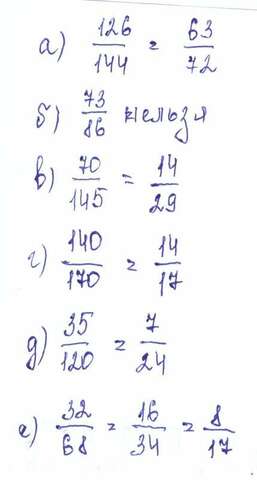 а) 126/144 = 63/72
б) 73/86 нельзя
в) 70/145 = 14/29
г) 140/170 = 14/17
д) 35/120 = 7/24
е) 32/68 = 16/34 = 8/17